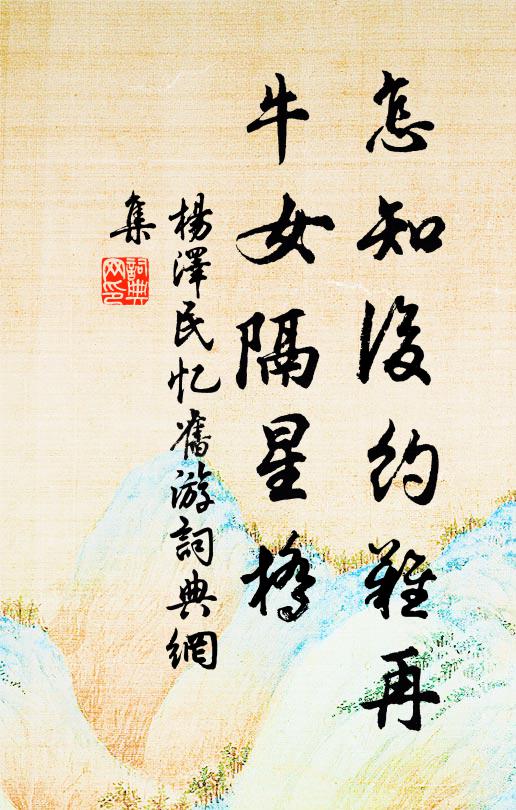 怎知後約難再
牛女隔星橋
楊澤民忆舊游詞典網
集
詞典
网印